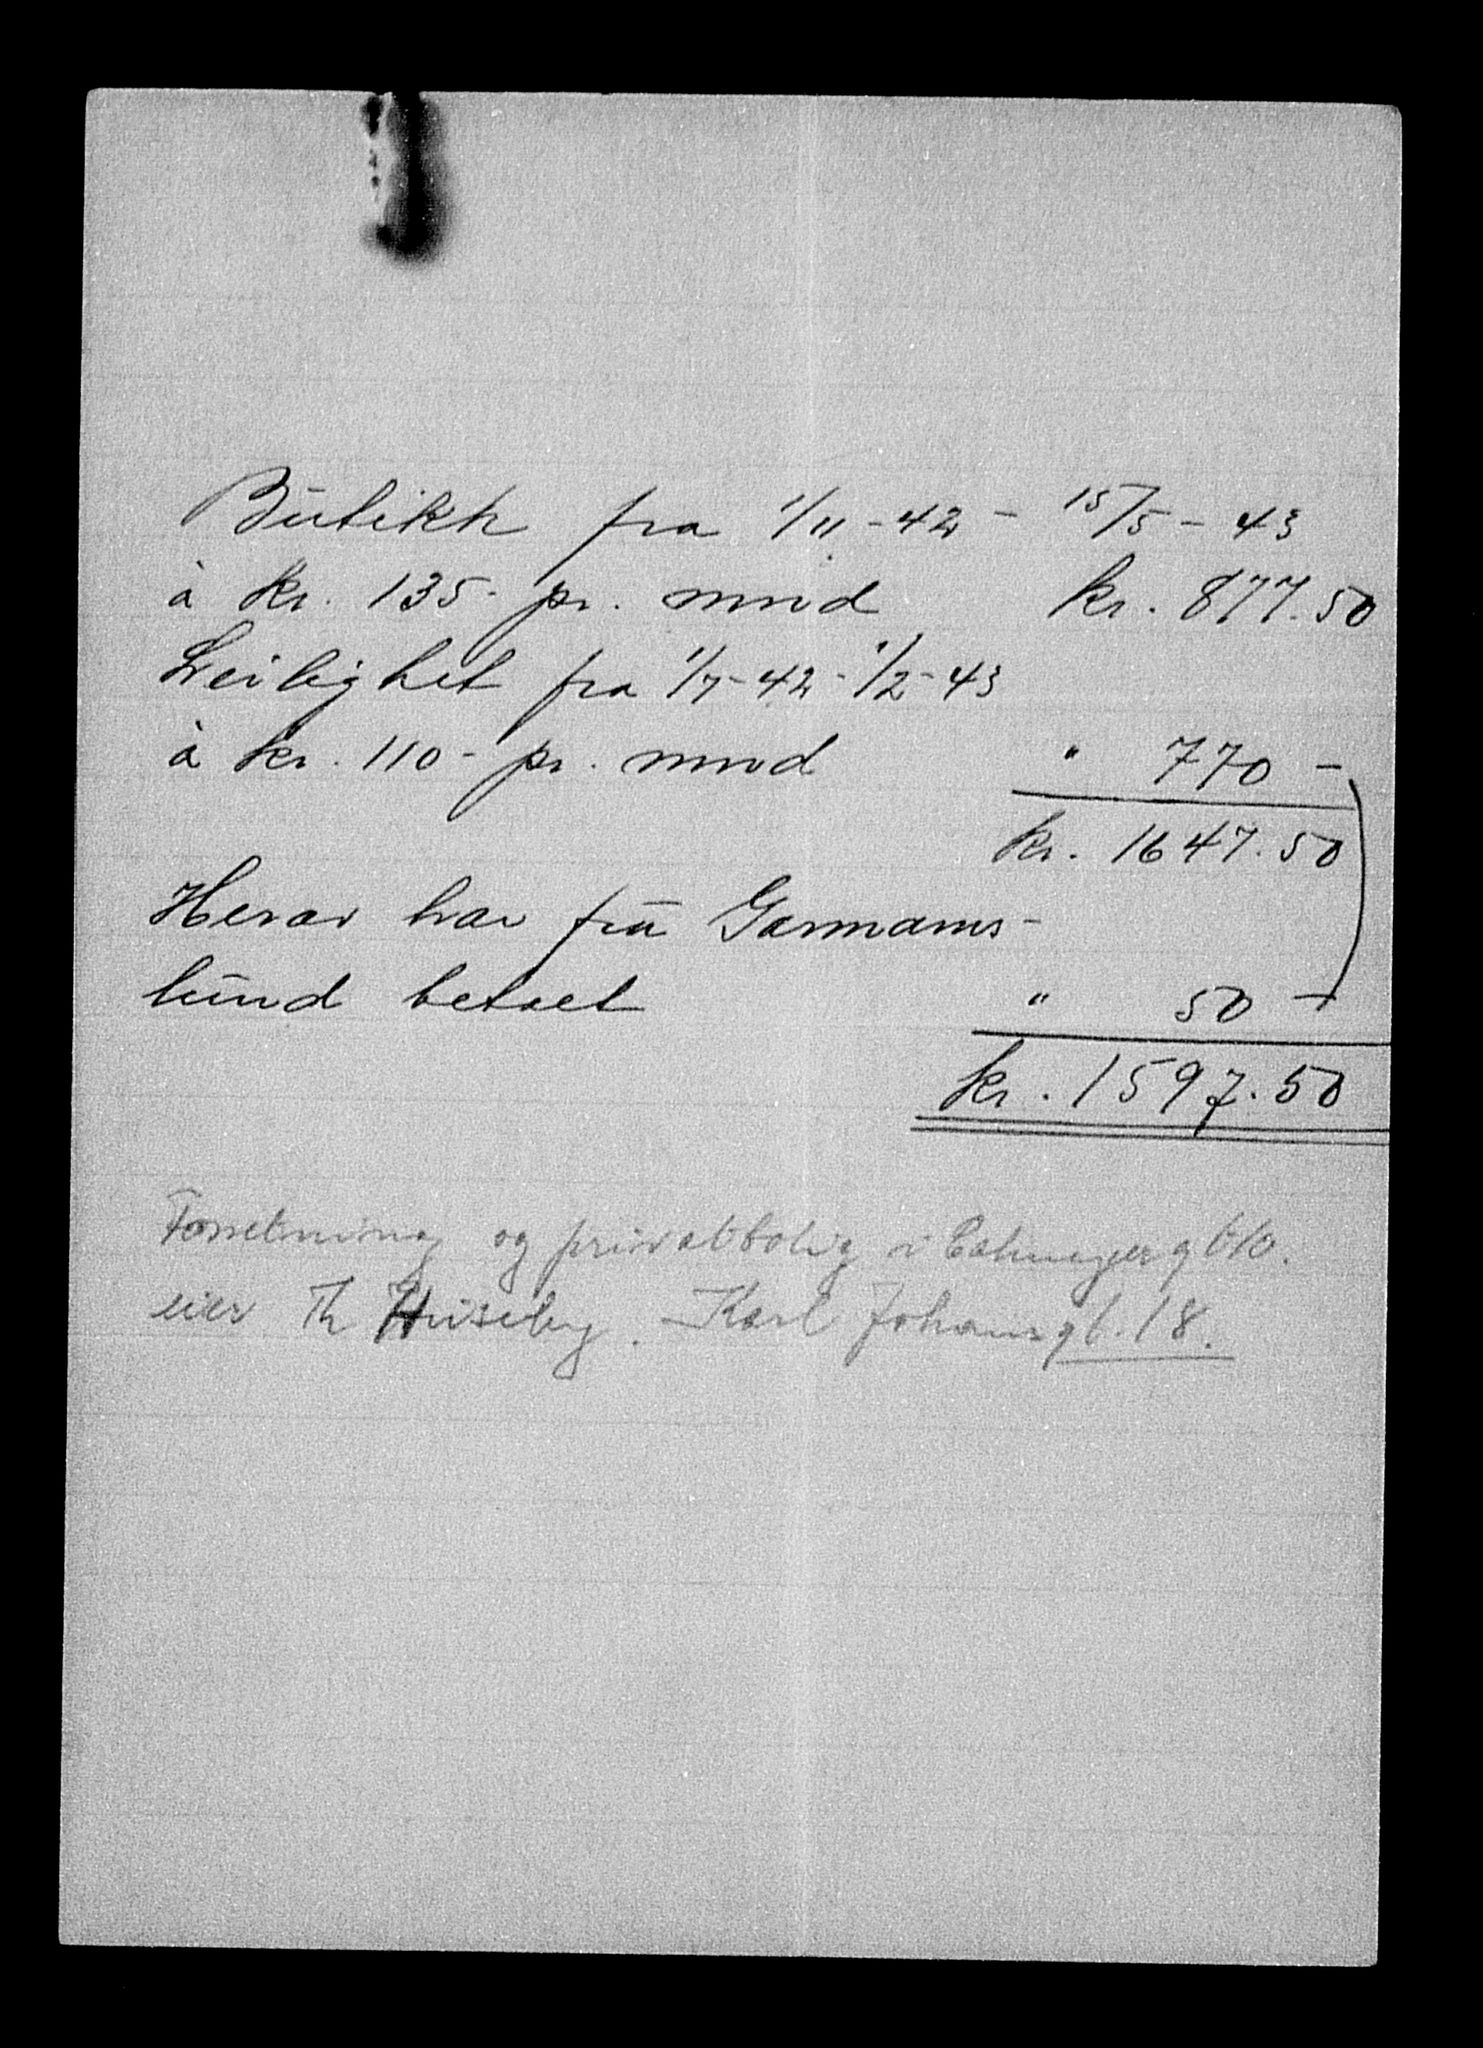 Butikk fra 1/11-42 - 15/5-43
à kr. 135- pr. mnd kr. 877.50
Leilighet fra 1/7-42-1/2-43
à kr. 110- pr. mnd " 770 -
kr. 1647.50
Herav har fru Garmanns-
lund betalt " 50 -
kr. 1597.50
Forretning og privatbolig i Calmeyergt 10.
eier Th Huseby. Karl Johansgt. 18.